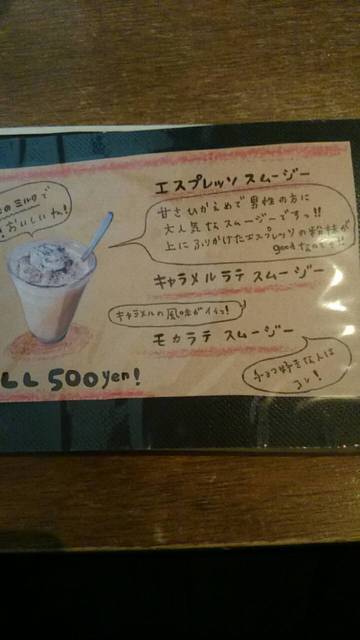 のミルクで
おいしいね!
エスプレッソ スムージー
甘さひかえめで男性の方に
大人気なスムージーですっ!!
上にふりかけたエスプレッソの粉末が
good なので!!
キャラメルラテ スムージー
キャラメルの風味がイイっ!
モカラテ スムージー
チョコ好きな人は
コレ!
LL 500yen!